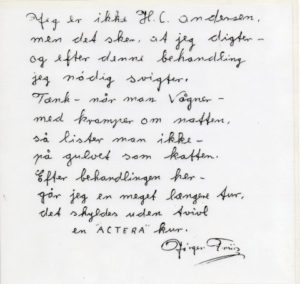 Jeg er ikke H.C. andersen,
men det sker, at jeg digter-
og efter denne behandling
jeg nödig svigter.
Tænk- når man vågner-
med kramper om natten,
så lister man ikke-
på gulvet som katten.
Efter behandlingen her-
går jeg en meget længere tur,
det skyldes uden tvivl
en "ACTERA" kur.
Jörgen Friis